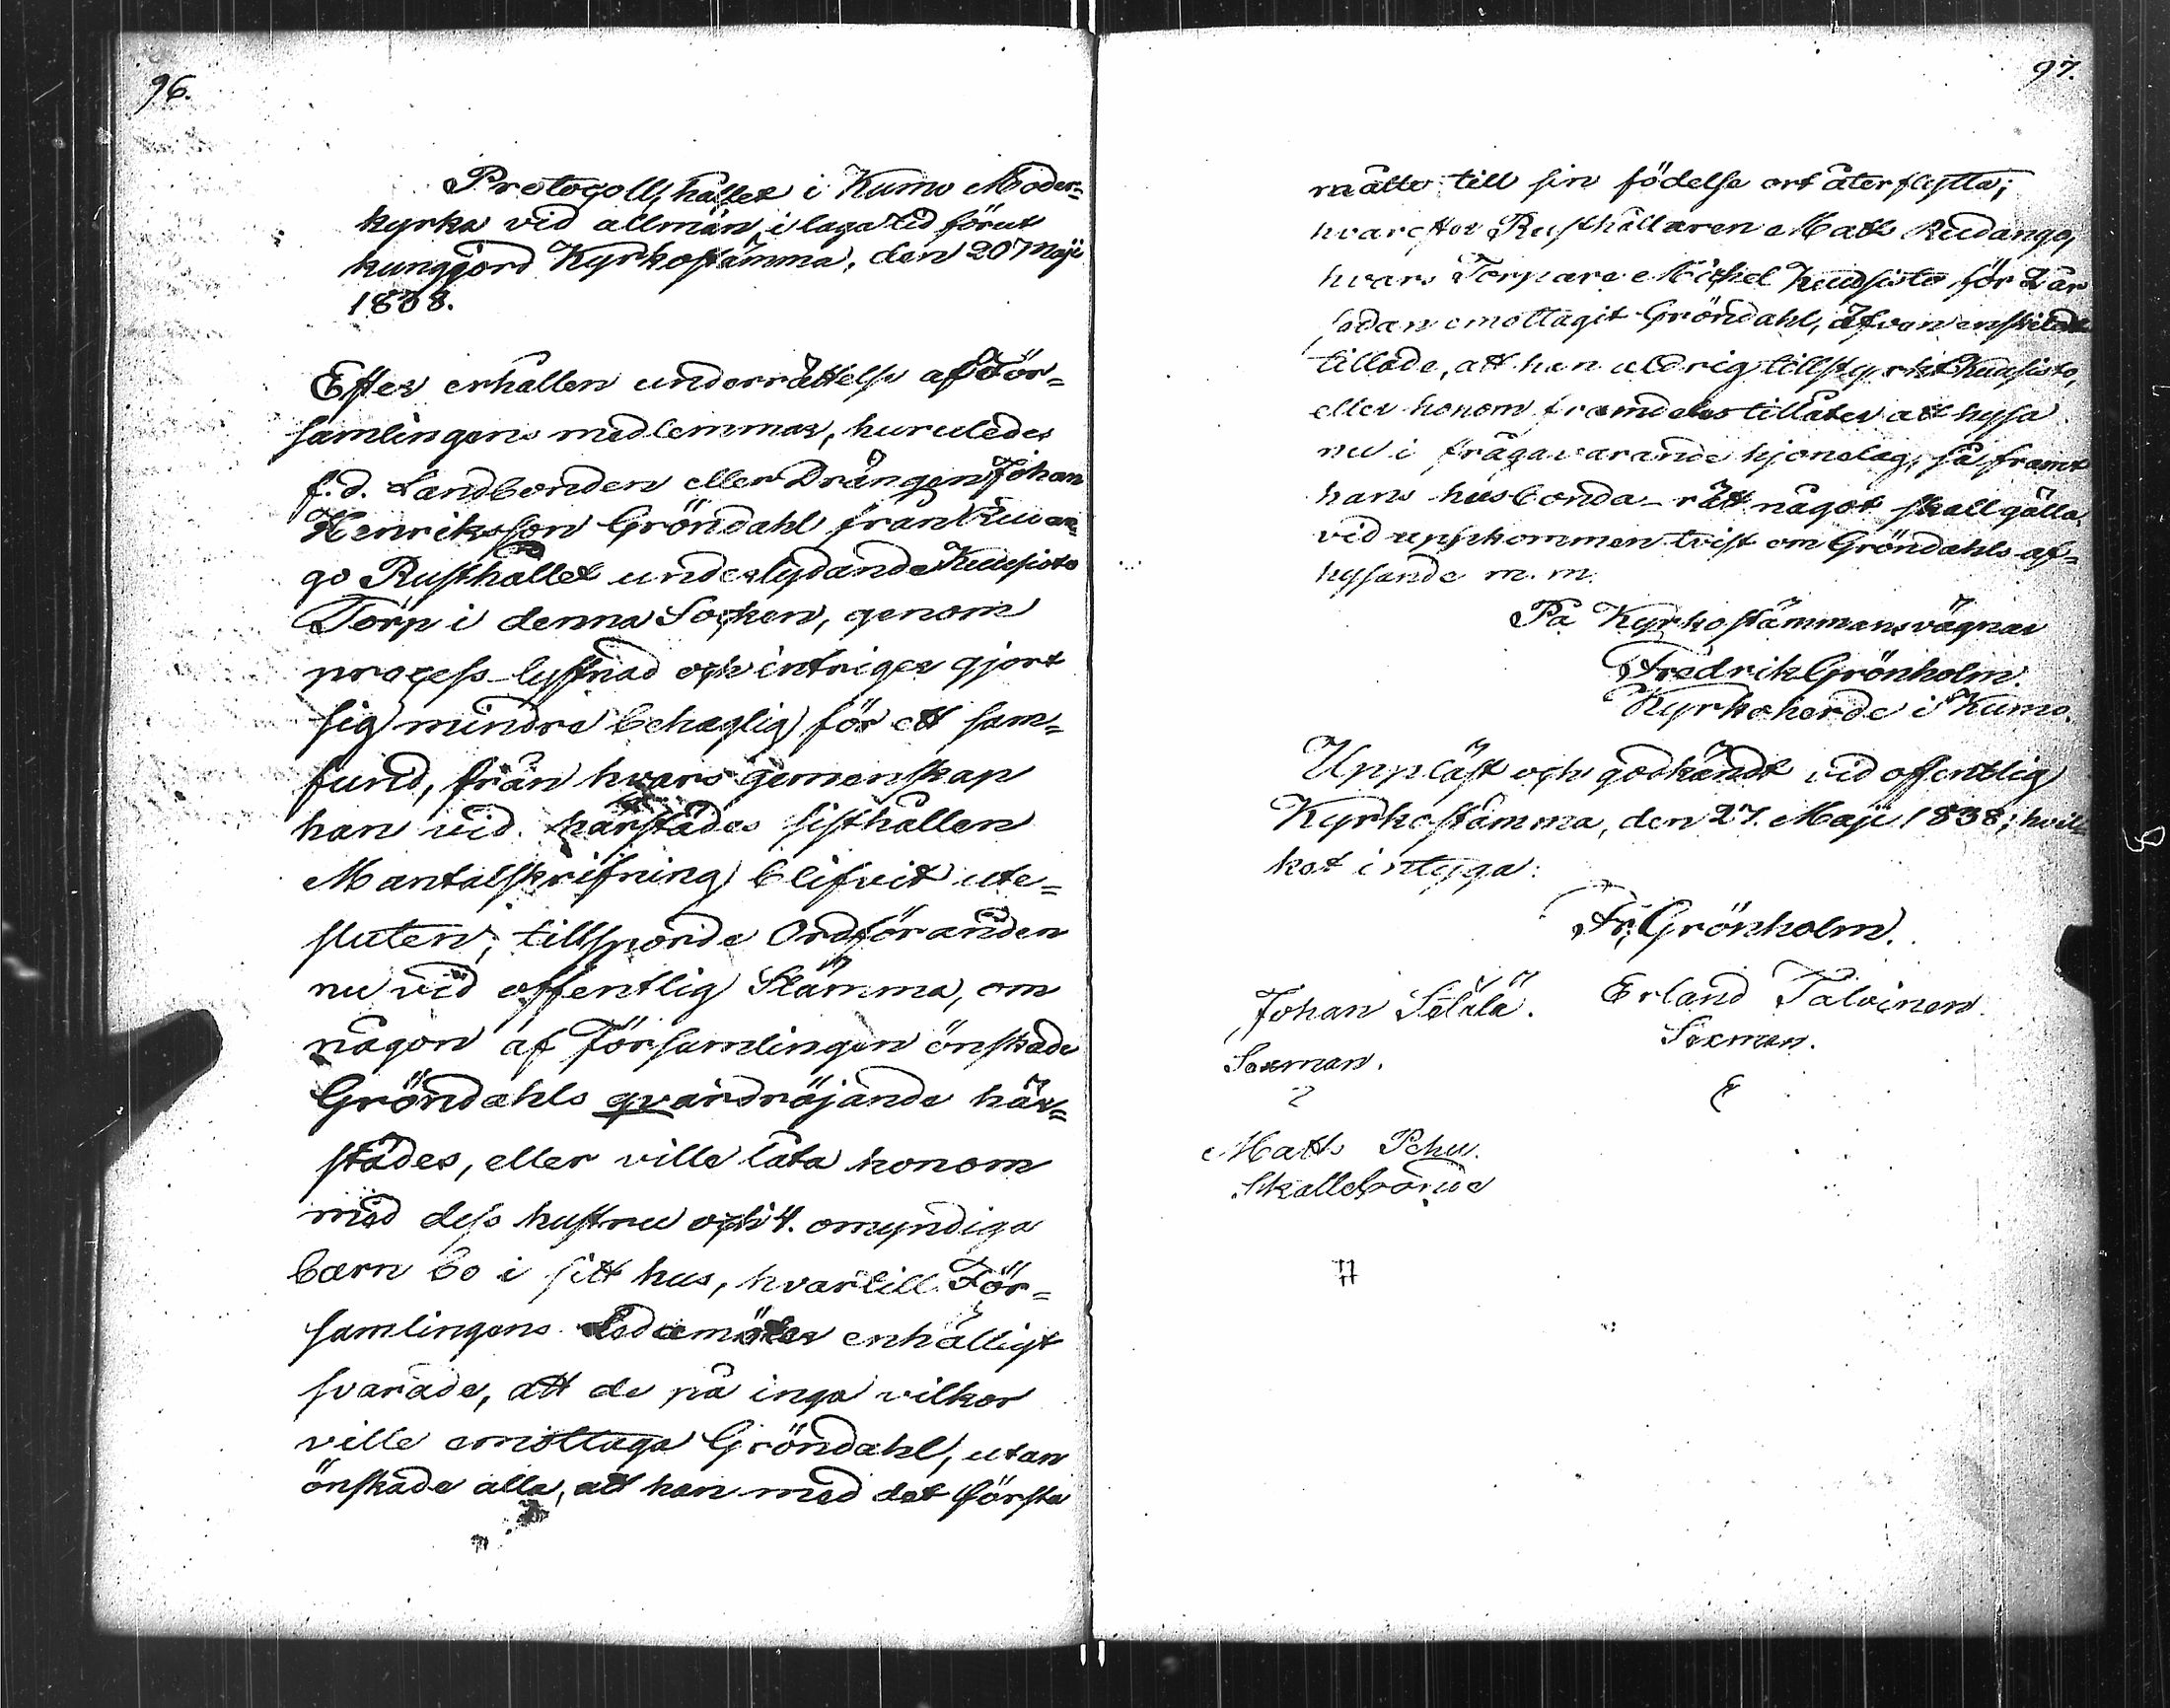 96.
Protocoll, hållet i Kumo Moder=
kyrka vid allmän, i laga tid förut
kungjord Kyrkostämma, den 20 Maji
1838.
Efter erhållen underrättelse af För=
samlingens medlemmar, huruledes
f.d. Landbonden eller Drängen Johan
Henriksson Gröndahl från Rudan=
go Rusthållet underlydande Kuusisto
Torp i denna Socken, genom
process-lystnad och intriger gjort
sig mindre behaglig för ett sam=
fund, från hvars gemenskap
han vid härstädes sisthållen
Mantalskrifning blifvit ute=
sluten; tillsporde Ordföranden
nu vid offentlig Stämma, om
någon af Församlingen önskade
Gröndahls qvardröjande här=
städes, eller ville låta honom
med dess hustru och 4. omyndiga
barn bo i sitt hus, hvartill För=
samlingens Ledamöter enhälligt
svarade, att de på inga vilkor
ville emottaga Gröndahl, utan
önskade alla, att han med det första
97.
måtte till sin födelse ort återflytta;
hvarefter Rusthållaren Matts Rudango,
hvars Torpare Michel Kuusisto för 2 år
sedan emottagit Gröndahl, äfven enskildt
tillade, att han aldrig tillstyrkt Kuusisto,
eller honom framdeles tillåter att hysa
nu i frågavarande hjonelag, så framt
hans husbonda-rätt något skall gälla
vid uppkommen tvist om Gröndahls af=
hysande m.m.
På Kyrkostämmans vägnar
Fredrik Grönholm.
Kyrkoherde i Kumo.
Uppläst och godkändt vid offentlig
Kyrkostämma, den 27. Maji 1838; hvil=
ket intyga:
Fr. Grönholm.
Johan Sälälä. Erland Talvinen.
Sexman. Sexman.
Matts Pehu.
Skallebonde